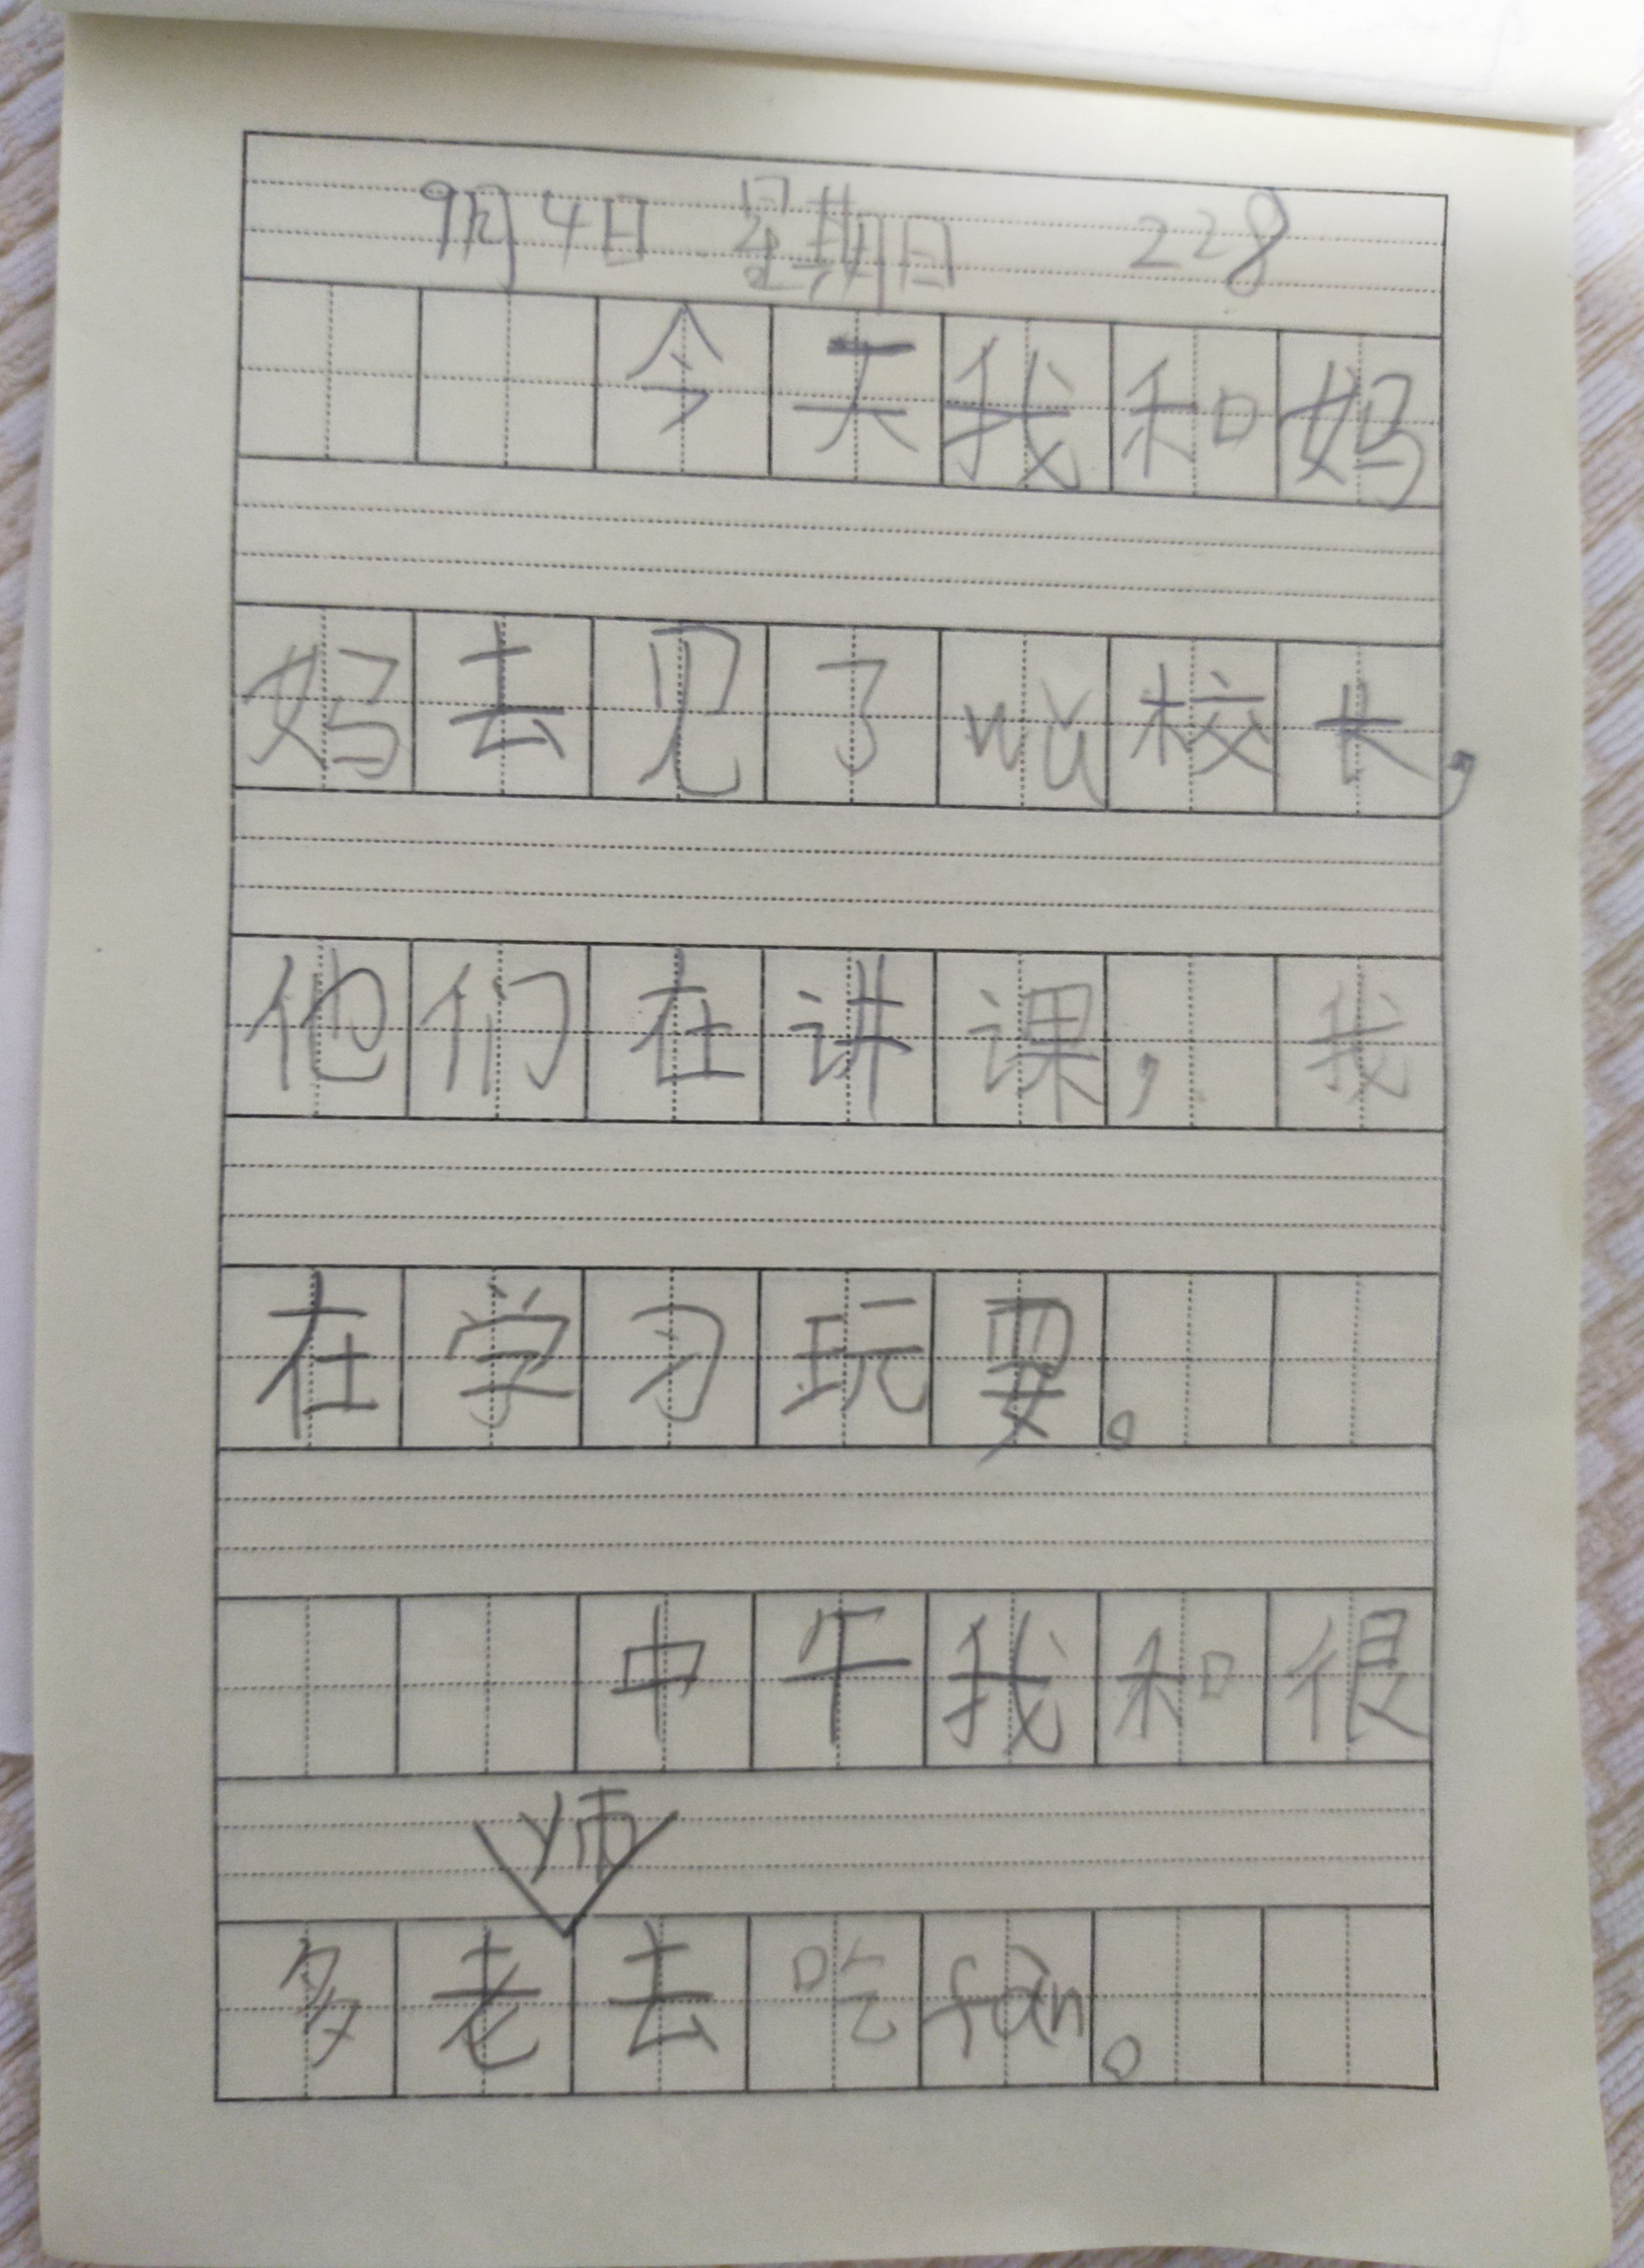 9月4日 星期日 228
今天我和妈
妈去见了wǔ校长,
他们在讲课,我
在学习玩要。
中午我和很
师
多老去吃fàn。